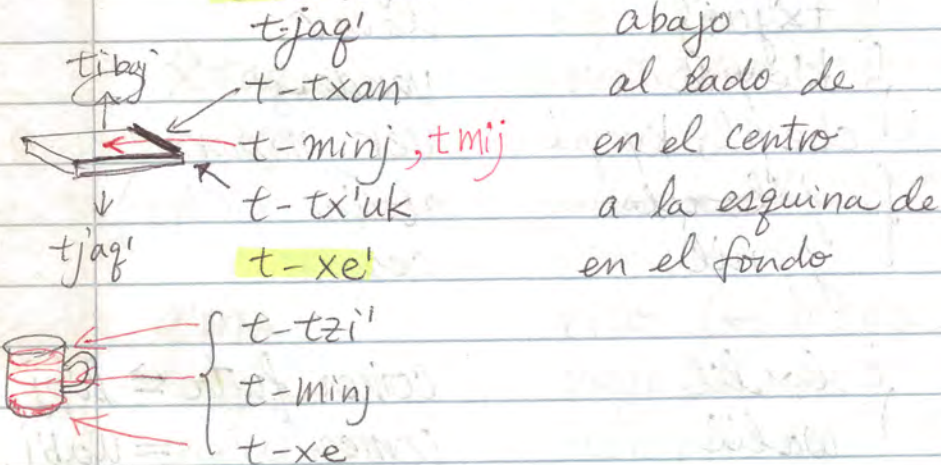 t-jaq' abajo
tibaj
t-txan al lado de
t-minj, tmij en el centro
t-tx'uk a la esquina de
tjaq'
t-xe' en el fondo
t-tzi'
t-minj
t-xe